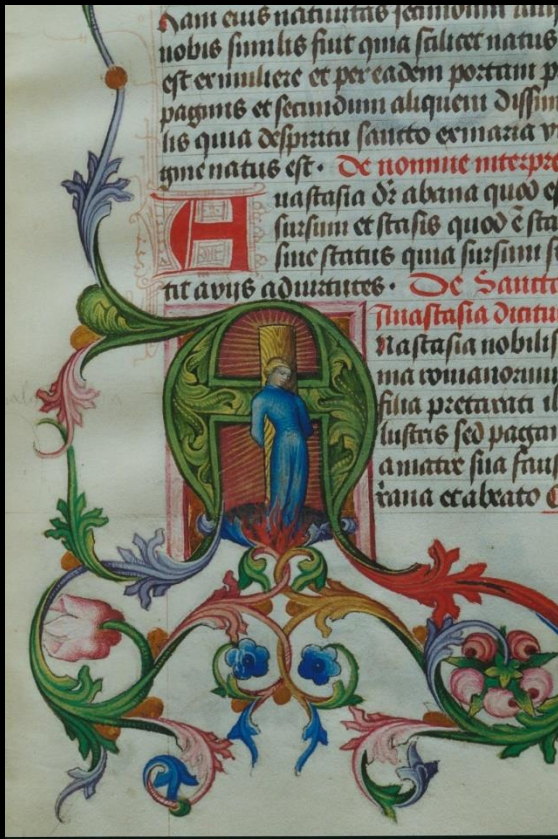 Nam eius nativitas
nobis similis fuit quia scilicet natus
est ex muliere et per eadem portam
paginis et secundum aliquem
lis quia despiritu sancto exmaria v
gine natus est. De nomine interpre
Anastasia dr̄ abana quod e
sursum et stasis quod ē sta
sive status quia sursum s
tit avijs advirtutes. De Sancta
Anastasia dicitu
Anastasia nobilis
ma romanorum
filia pretaxati il
lustris sed pagan
a matre sua faus
rana et abeato